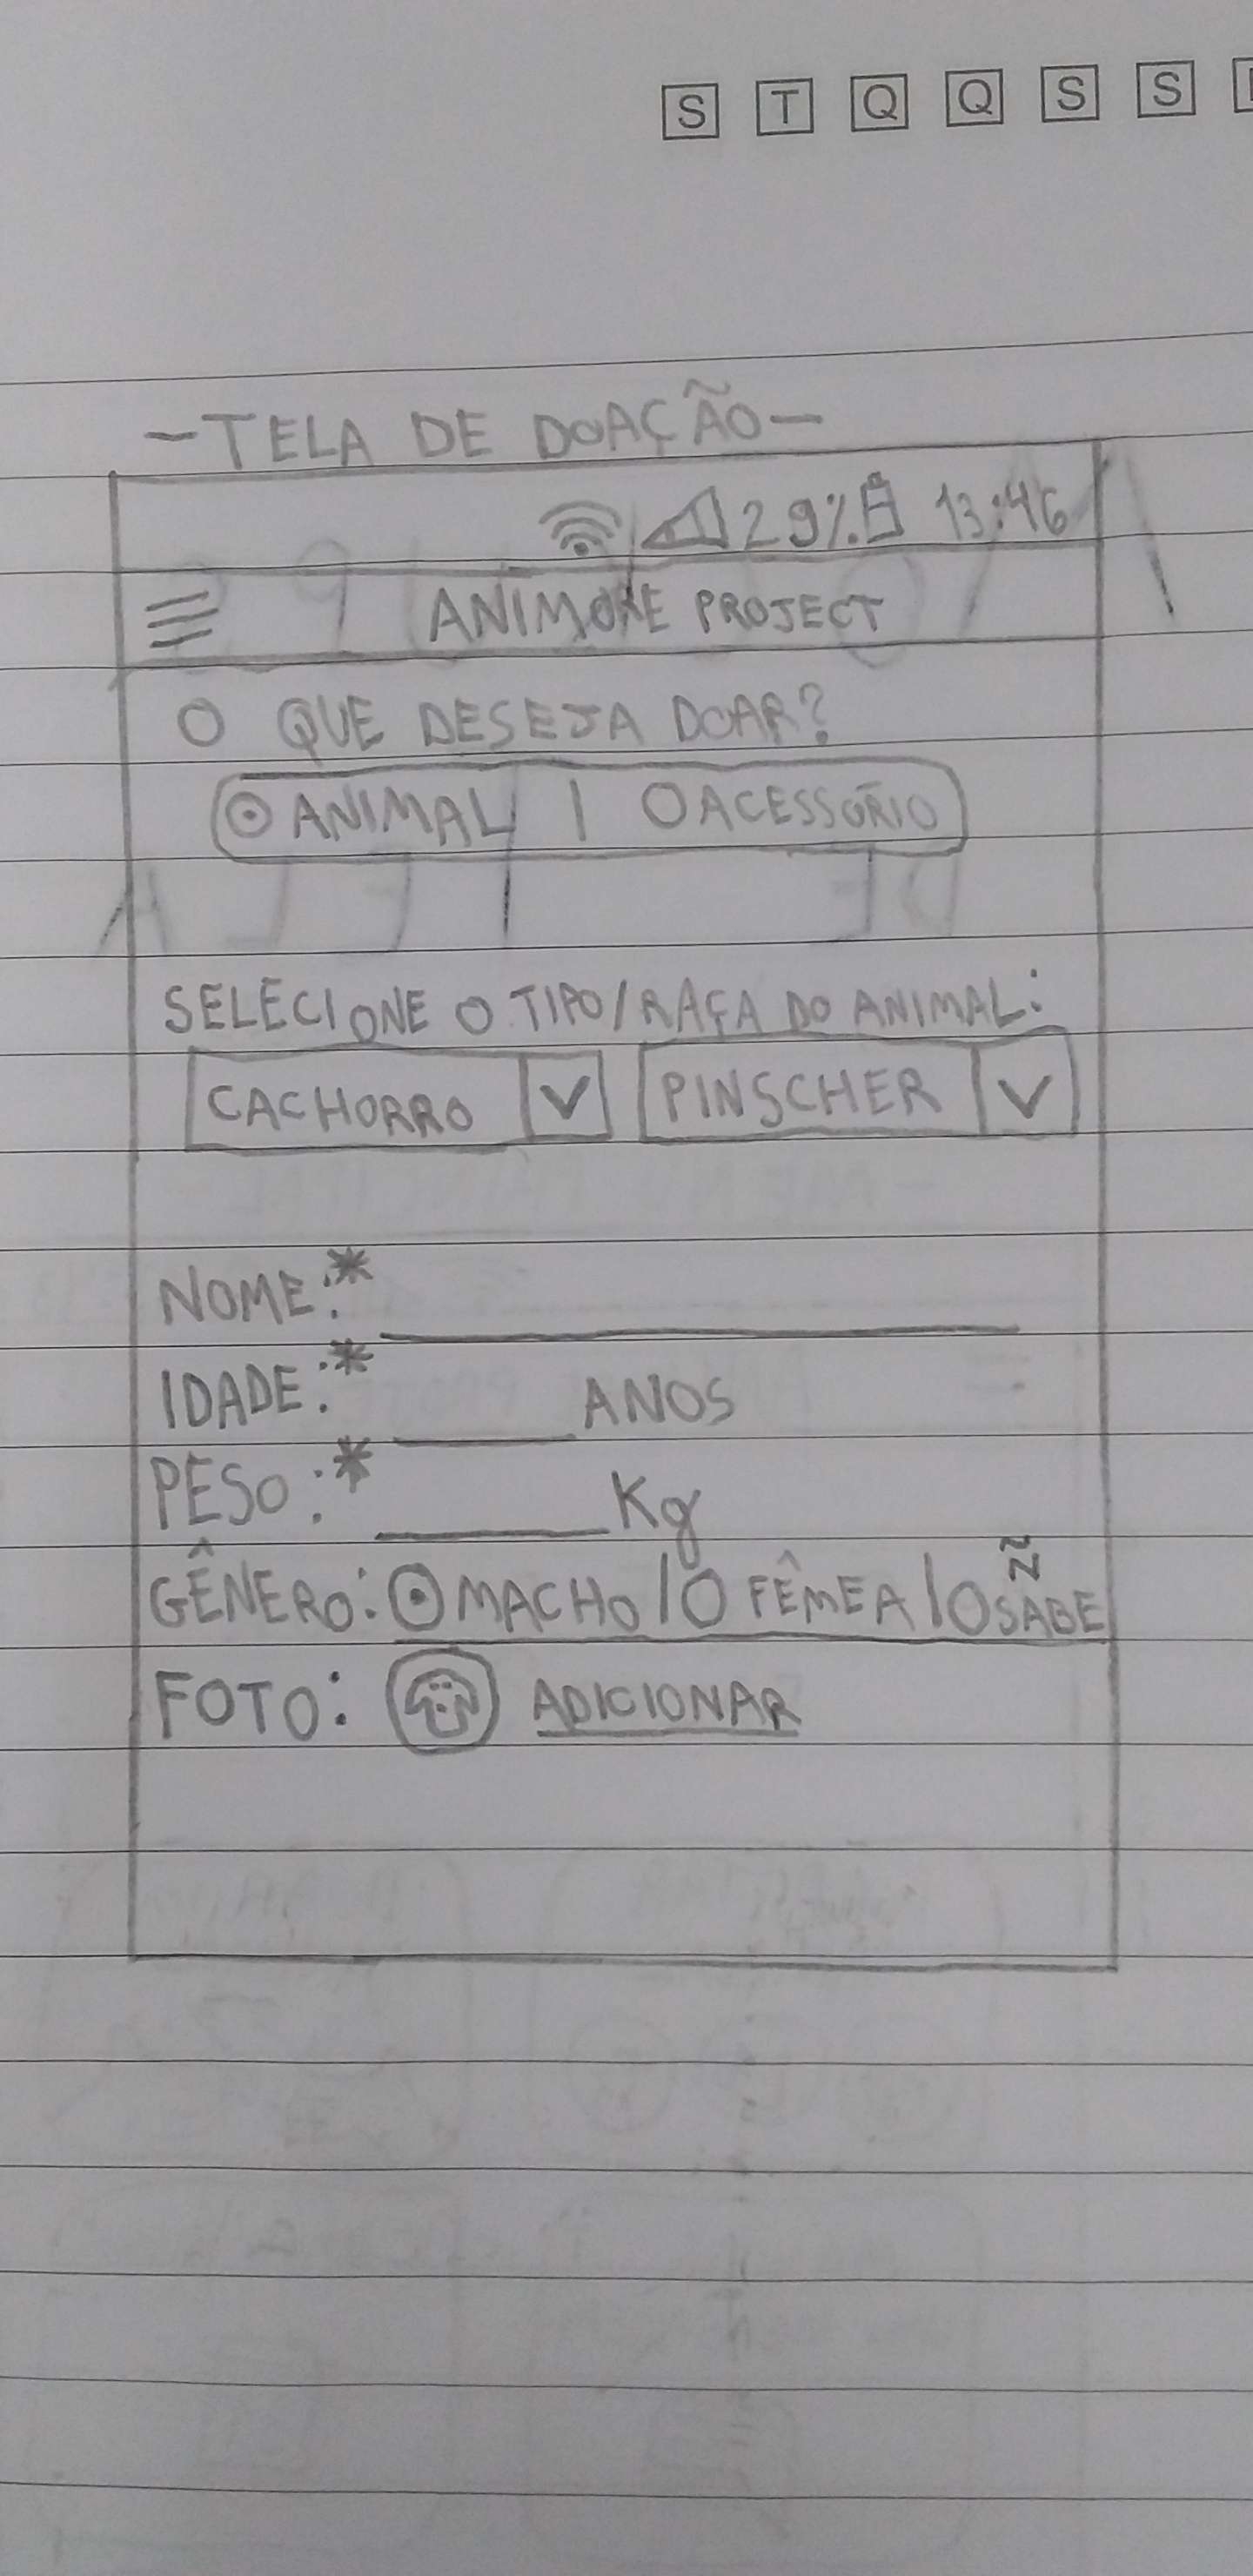 S T Q Q S S
-TELA DE DOAÇÃO-
29% 13:46
ANIMORE PROJECT
O QUE DESEJA DOAR?
ANIMAL | ACESSÓRIO
SELECIONE O TIPO/RAÇA DO ANIMAL:
CACHORRO V PINSCHER V
NOME:*
IDADE:* ANOS
PESO:* Kg
GÊNERO: MACHO / FÊMEA / Ñ SABE
FOTO: ADICIONAR